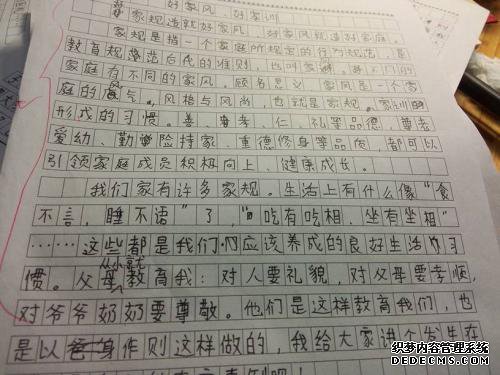 好家风 好家训
家规造就好家风，好家风就造好家庭。
家规是指一个家庭所规定的行为规范，是
教育规范后代的准则，也叫家
家庭有不同的家风。顾名思义，家风是一个家
庭的风气，风格与风尚，也就是家规、家训的
形成的习惯。善、孝、仁、礼等品德，尊老
爱幼、勤俭持家、重德修身等品质，都可以
引领家庭成员积极向上、健康成长。
我们家有许多家规。生活上有什么像“食
不言，睡不语”了，“吃有吃相，坐有坐相”
……这些都是我们应该养成的良好生活习
惯。父母从小就教育我：对人要礼貌，对父母要孝顺，
对爷爷奶奶要尊敬。他们是这样教育我们，也
是以身作则这样做的，我给大家讲个发生在
默认站点
www.duwenzhang.com